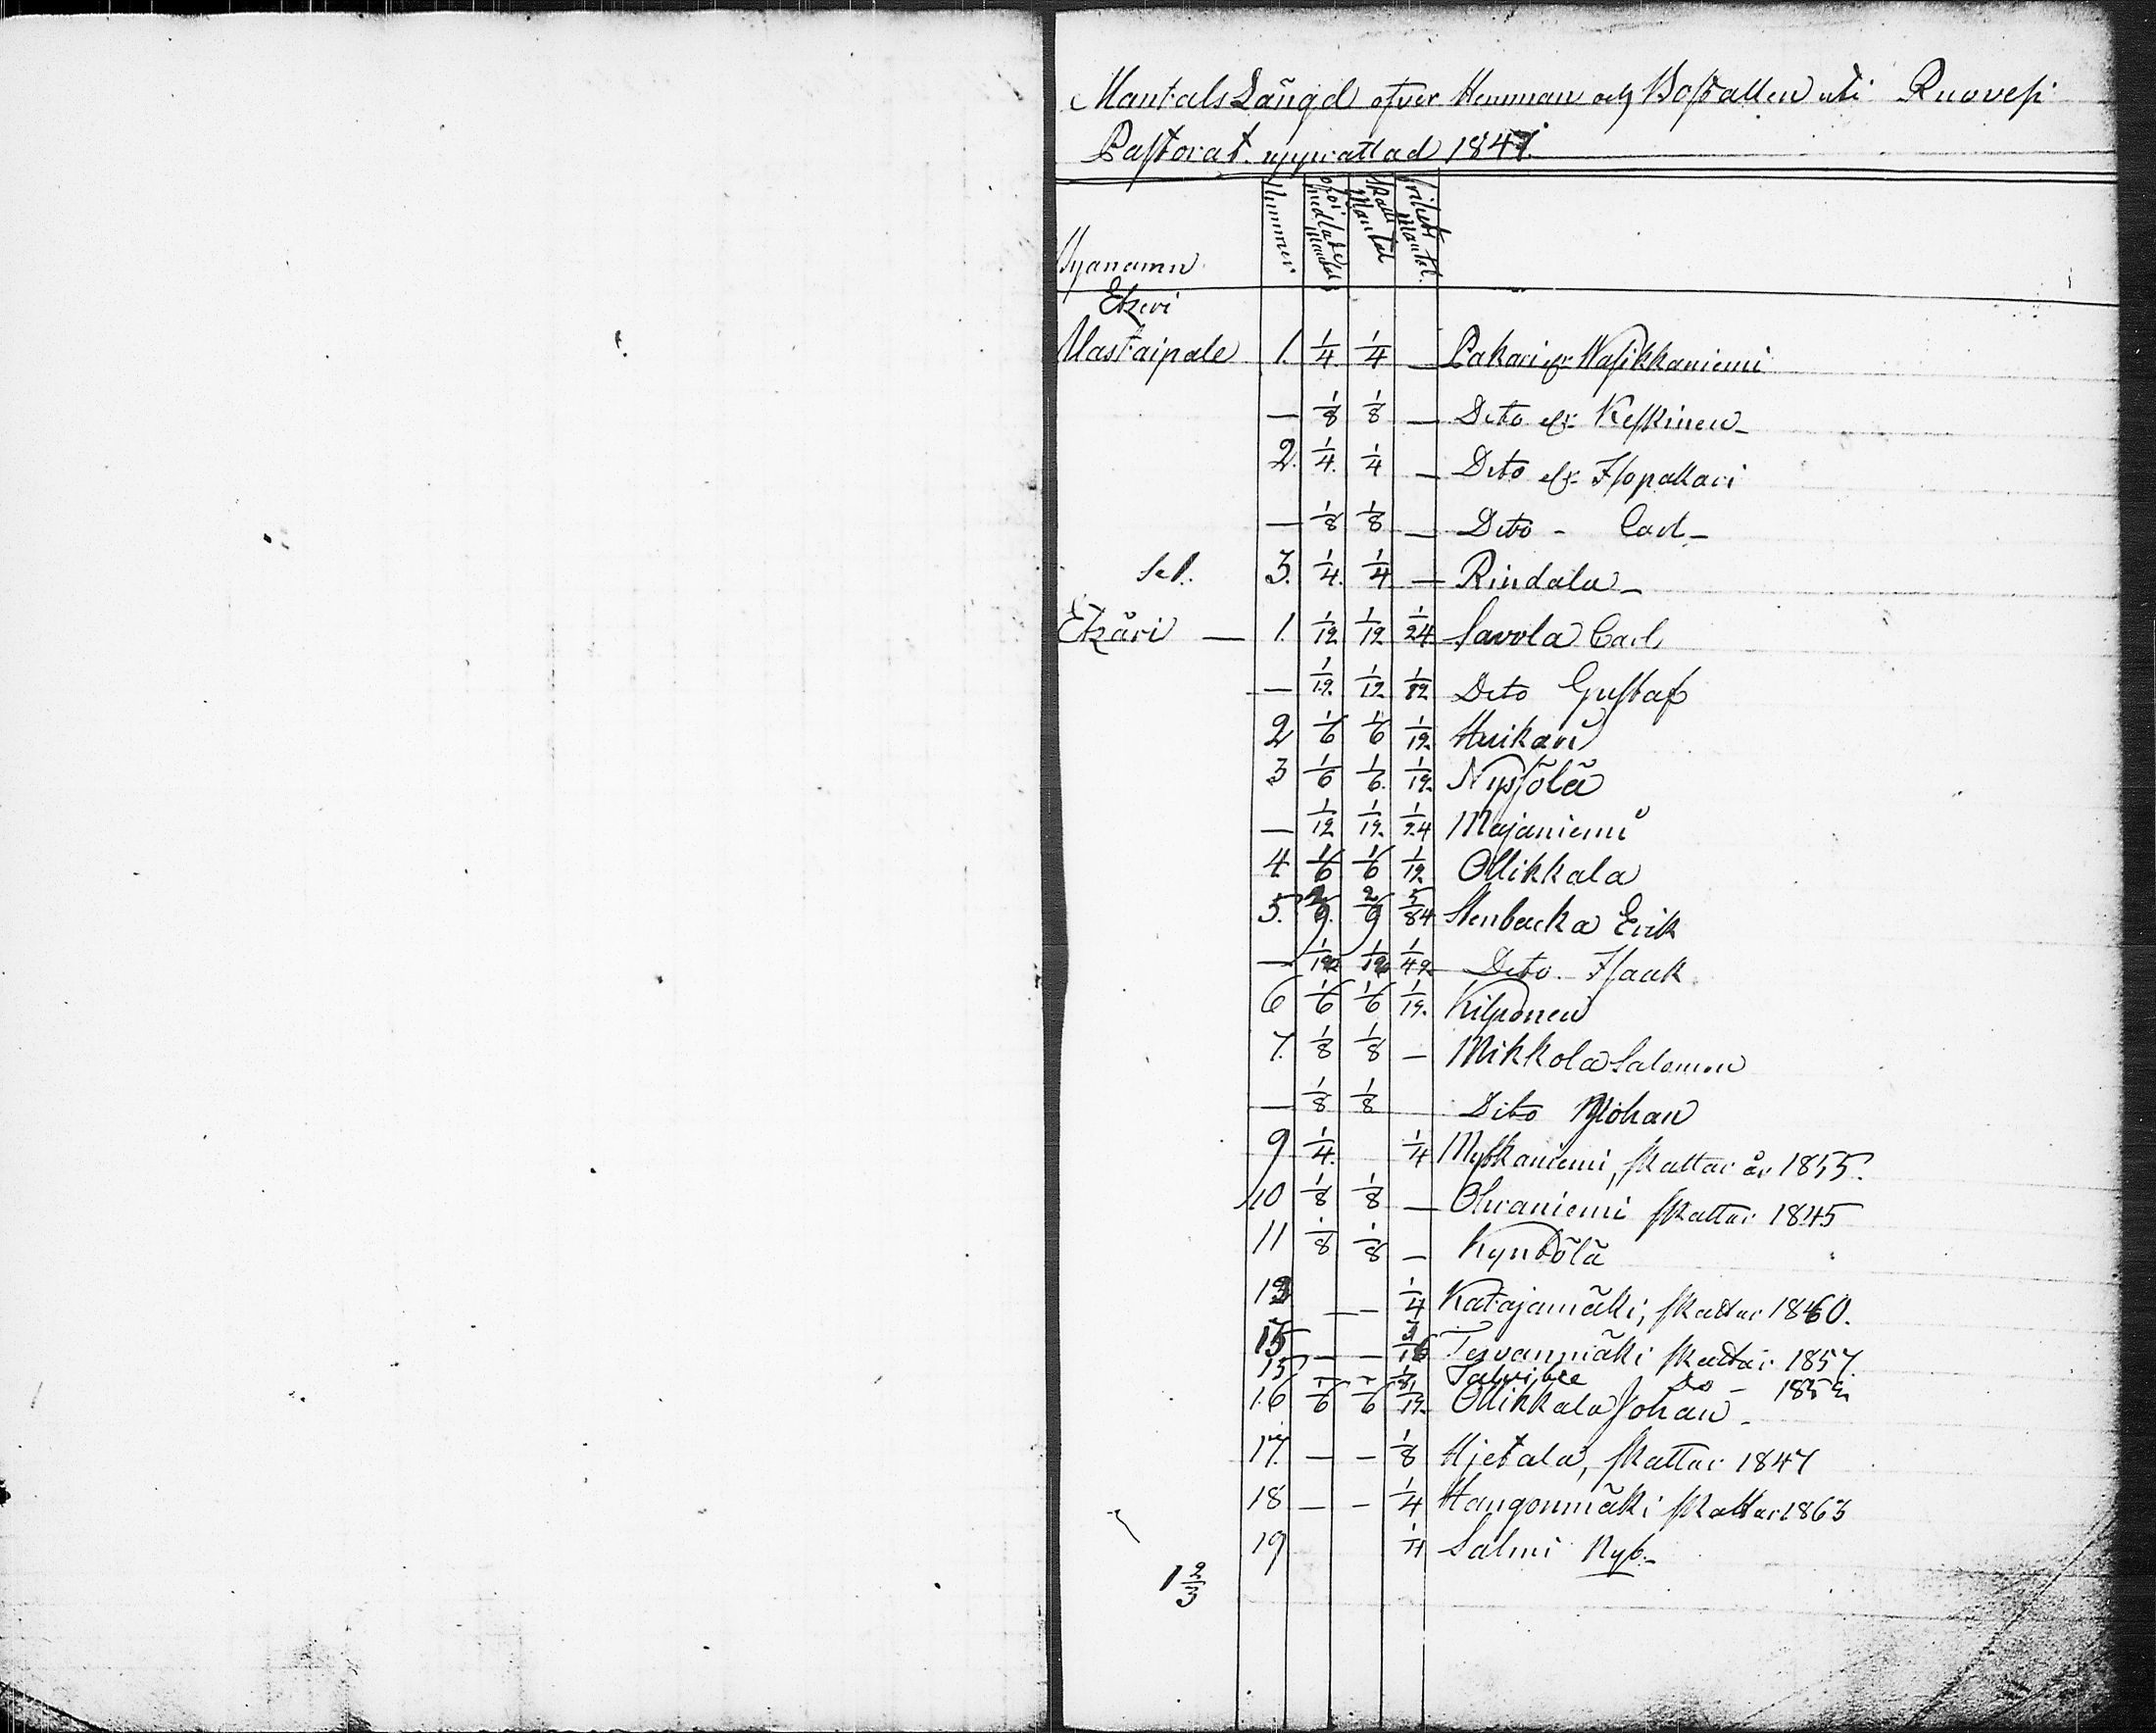 Mantals Längd öfver Hemman och Boställen uti Ruovesi
Pastorat upprättad 1847.
Byanamn Nummer oförmedlade Mantal Skatt Mantal Mantal.
Etzeri
Mastaipale 1. 1/4. 1/4 — Pakari Wasikkaniemi
— 1/8 1/8 — Dito Keskinen –
2. 1/4. 1/4 — Dito Isopakari
— 1/8 1/8 — Dito – Carl –
3. 1/4. 1/4 — Rindala –
Etzäri — 1. 1/12 1/12 1/24 Savola Carl
— 1/12. 1/12 Dito Gustaf
2 1/6 1/6 1/12. Huikari
3 1/6 1/6. 1/12. Nyyssölä
— 1/12 1/12. 1/24 Majaniemi
4 1/6 1/6 1/12. Ollikkala
5. 2/9. 2/9 5/84 Stenbacka Erik
— Dito. Isaak
6 1/6 1/6 1/12. Kilponen
7. 1/8 1/8 — Mikkola Salomon
— 1/8 1/8 Dito Johan
9 1/4. 1/4 Myllykaniemi, skattar år 1855.
10 1/8 1/8 — Ohraniemi skattar 1845
11 1/8 1/8 — Kyntölä
— – 1/4 Katajamäki, skattar 1860.
15 — — Tervanmäki skattar 1857.
15 do –
16 1/6 1/6 1/12. Ollikkala Johan –
17. — – 1/8 Hjetala, skattar 1847
18 — – 1/4 Hangonmäki skattar 1863
19 1/4 Salmi Nyb. –
1 2/3